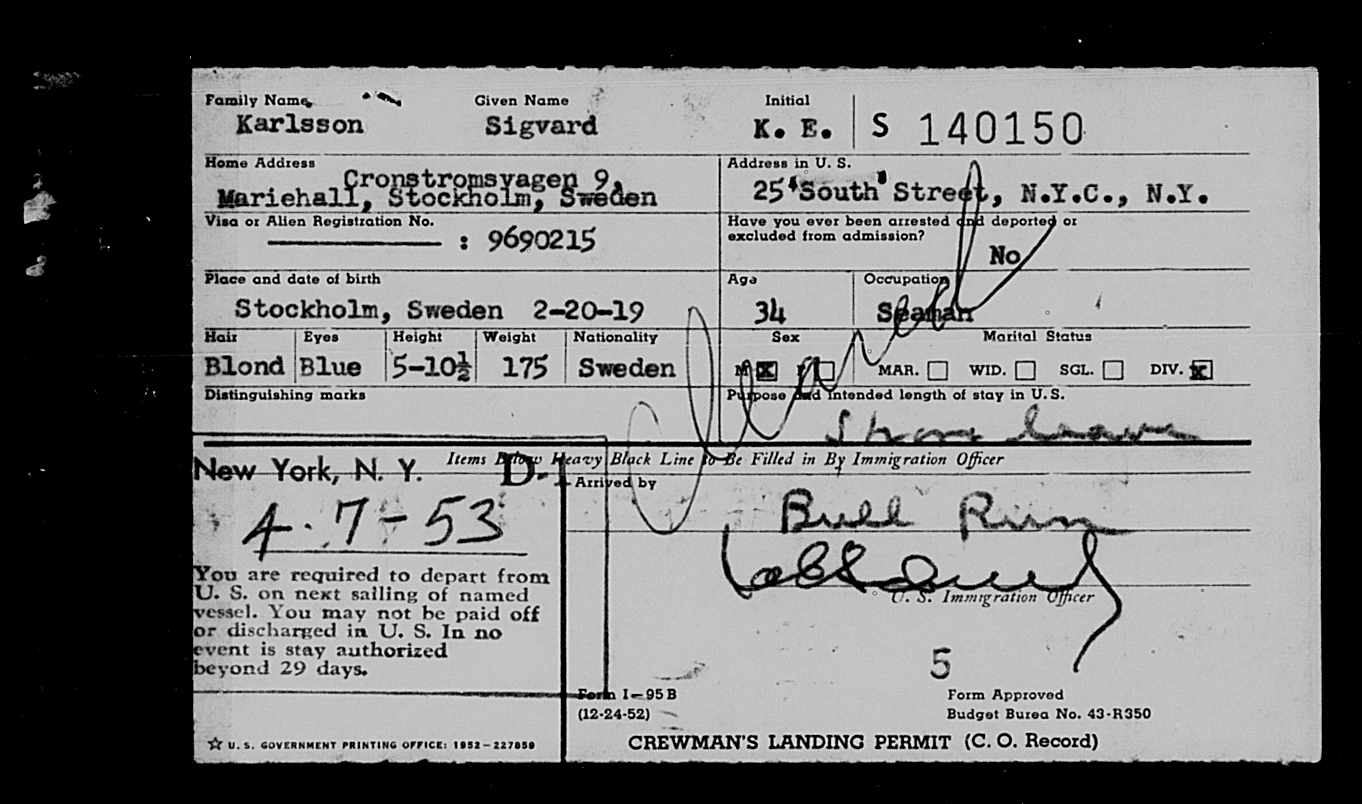 Family Name Given Name Initial
Karlsson Sigvard K. E. S 140150
Home Address Address in U. S.
Cronstromsvagen 9,
Mariehall, Stockholm, Sweden 25 "South" Street, N.Y.C., N.Y.
Visa or Alien Registration No. Have you ever been arrested and deported or
excluded from admission?
: 9690215 No
Place and date of birth Age Occupation
Stockholm, Sweden 2-20-19 34 Seaman
Hair Eyes Height Weight Nationality Sex Marital Status
Blond Blue 5-10½ 175 Sweden M X F MAR. WID. SGL. DIV. X
Distinguishing marks Purpose and intended length of stay in U.S.
Shore leave
Items Below Heavy Black Line to Be Filled in By Immigration Officer
New York, N. Y. D-1 Arrived by
4-7-53 Bull Run
U. S. Immigration Officer
You are required to depart from
U. S. on next sailing of named
vessel. You may not be paid off
or discharged in U. S. In no
event is stay authorized
beyond 29 days.
5
Form I-95 B Form Approved
(12-24-52) Budget Burea No. 43-R350
☆ U. S. GOVERNMENT PRINTING OFFICE: 1952-227859
CREWMAN'S LANDING PERMIT (C. O. Record)